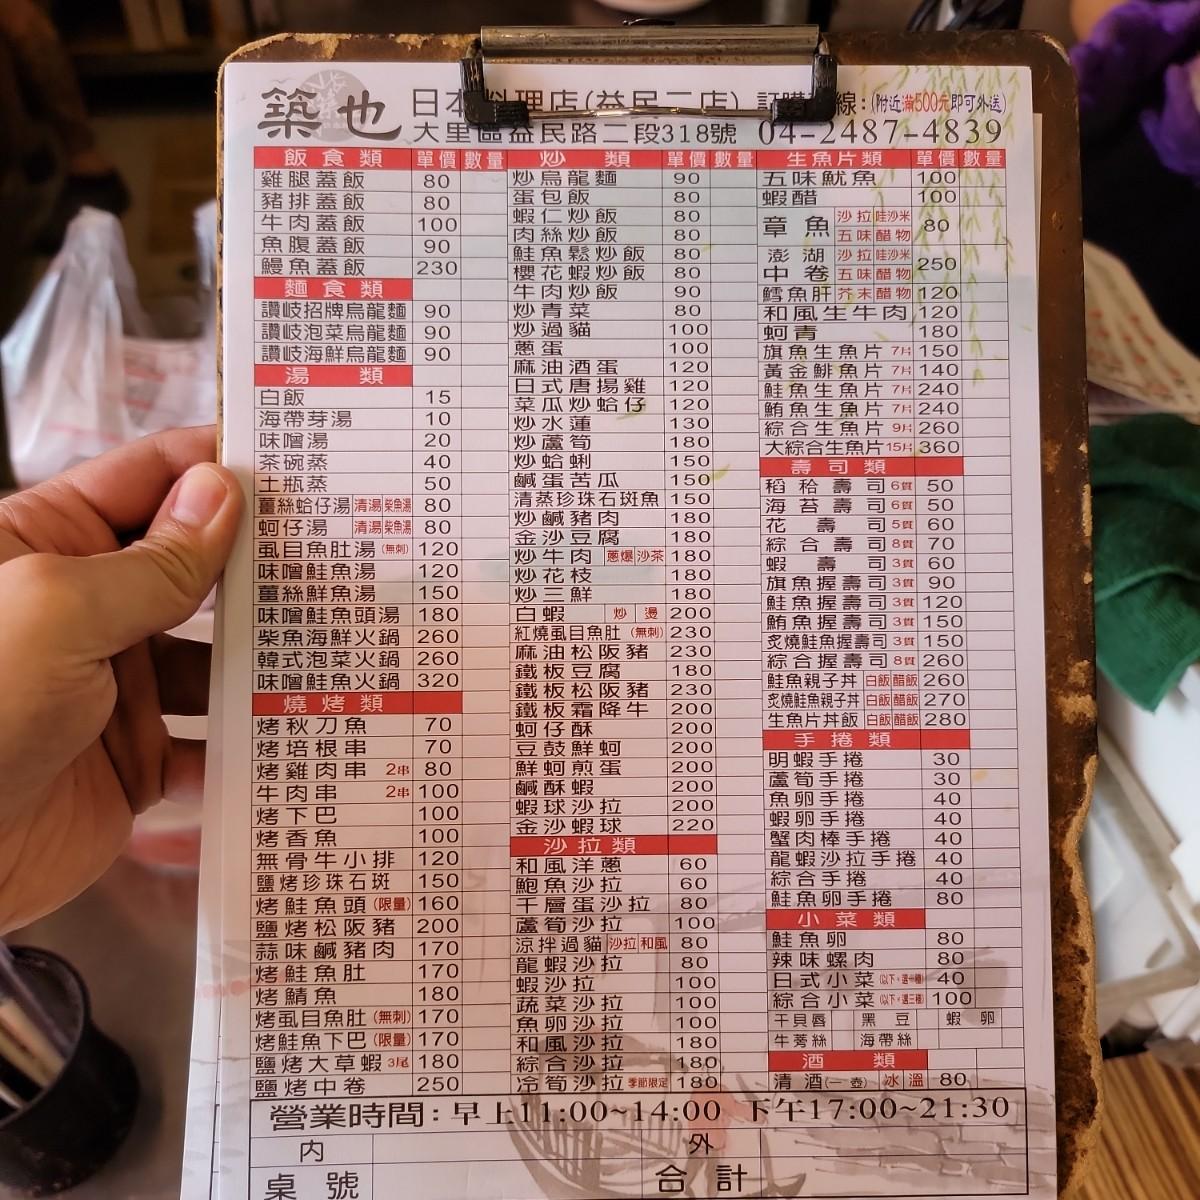 築也 日本料理店(益民二店) 訂購 線:(附近滿500元即可外送)
大里區益民路二段318號 04-2487-4839
飯食類 單價 數量
雞腿蓋飯 80
豬排蓋飯 80
牛肉蓋飯 100
魚腹蓋飯 90
鰻魚蓋飯 230
麵食類
讚岐招牌烏龍麵 90
讚岐泡菜烏龍麵 90
讚岐海鮮烏龍麵 90
湯類
白飯 15
海帶芽湯 10
味噌湯 20
茶碗蒸 40
土瓶蒸 50
薑絲蛤仔湯 清湯 柴魚湯 80
蚵仔湯 清湯 柴魚湯 80
虱目魚肚湯(無刺) 120
味噌鮭魚湯 120
薑絲鮮魚湯 150
味噌鮭魚頭湯 180
柴魚海鮮火鍋 260
韓式泡菜火鍋 260
味噌鮭魚火鍋 320
燒烤類
烤秋刀魚 70
烤培根串 70
烤雞肉串 2串 80
牛肉串 2串 100
烤下巴 100
烤香魚 100
無骨牛小排 120
鹽烤珍珠石斑 150
烤鮭魚頭(限量) 160
鹽烤松阪豬 200
蒜味鹹豬肉 170
烤鮭魚肚 170
烤鯖魚 180
烤虱目魚肚(無刺) 170
烤鮭魚下巴(限量) 170
鹽烤大草蝦 3尾 180
鹽烤中卷 250
炒類 單價 數量
炒烏龍麵 90
蛋包飯 80
蝦仁炒飯 80
肉絲炒飯 80
鮭魚鬆炒飯 80
櫻花蝦炒飯 80
牛肉炒飯 90
炒青菜 80
炒過貓 100
蔥蛋 100
麻油酒蛋 120
日式唐揚雞 120
菜瓜炒蛤仔 120
炒水蓮 130
炒蘆筍 180
炒蛤蜊 150
鹹蛋苦瓜 150
清蒸珍珠石斑魚 150
炒鹹豬肉 180
金沙豆腐 180
炒牛肉 蔥爆 沙茶 180
炒花枝 180
炒三鮮 180
白蝦 炒 燙 200
紅燒虱目魚肚(無刺) 230
麻油松阪豬 230
鐵板豆腐 180
鐵板松阪豬 230
鐵板霜降牛 200
蚵仔酥 200
豆鼓鮮蚵 200
鮮蚵煎蛋 200
鹹酥蝦 200
蝦球沙拉 200
金沙蝦球 220
沙拉類
和風洋蔥 60
鮑魚沙拉 60
千層蛋沙拉 80
蘆筍沙拉 100
涼拌過貓 沙拉 和風 80
龍蝦沙拉 80
蝦沙拉 100
蔬菜沙拉 100
魚卵沙拉 100
和風沙拉 180
綜合沙拉 180
冷筍沙拉 季節限定 180
生魚片類 單價 數量
五味魷魚 100
蝦醋 100
章魚 沙拉 哇沙米 五味 醋物 80
澎湖中卷 沙拉 哇沙米 五味 醋物 250
鱈魚肝 芥末 醋物 120
和風生牛肉 120
蚵青 180
旗魚生魚片 7片 150
黃金鯡魚片 7片 140
鮭魚生魚片 7片 240
鮪魚生魚片 7片 240
綜合生魚片 9片 260
大綜合生魚片 15片 360
壽司類
稻禾壽司 6貫 50
海苔壽司 6貫 50
花壽司 5貫 60
綜合壽司 8貫 70
蝦壽司 3貫 60
旗魚握壽司 3貫 90
鮭魚握壽司 3貫 120
鮪魚握壽司 3貫 150
炙燒鮭魚握壽司 3貫 150
綜合握壽司 8貫 260
鮭魚親子丼 白飯 醋飯 260
炙燒鮭魚親子丼 白飯 醋飯 270
生魚片丼飯 白飯 醋飯 280
手捲類
明蝦手捲 30
蘆筍手捲 30
魚卵手捲 40
蝦卵手捲 40
蟹肉棒手捲 40
龍蝦沙拉手捲 40
綜合手捲 40
鮭魚卵手捲 80
小菜類
鮭魚卵 80
辣味螺肉 80
日式小菜(以下,選一種) 40
綜合小菜(以下,選三種) 100
干貝唇 黑豆 蝦卵
牛蒡絲 海帶絲
酒類
清酒(一壺) 冰 溫 80
營業時間:早上11:00~14:00 下午17:00~21:30
內 外
桌號 合計